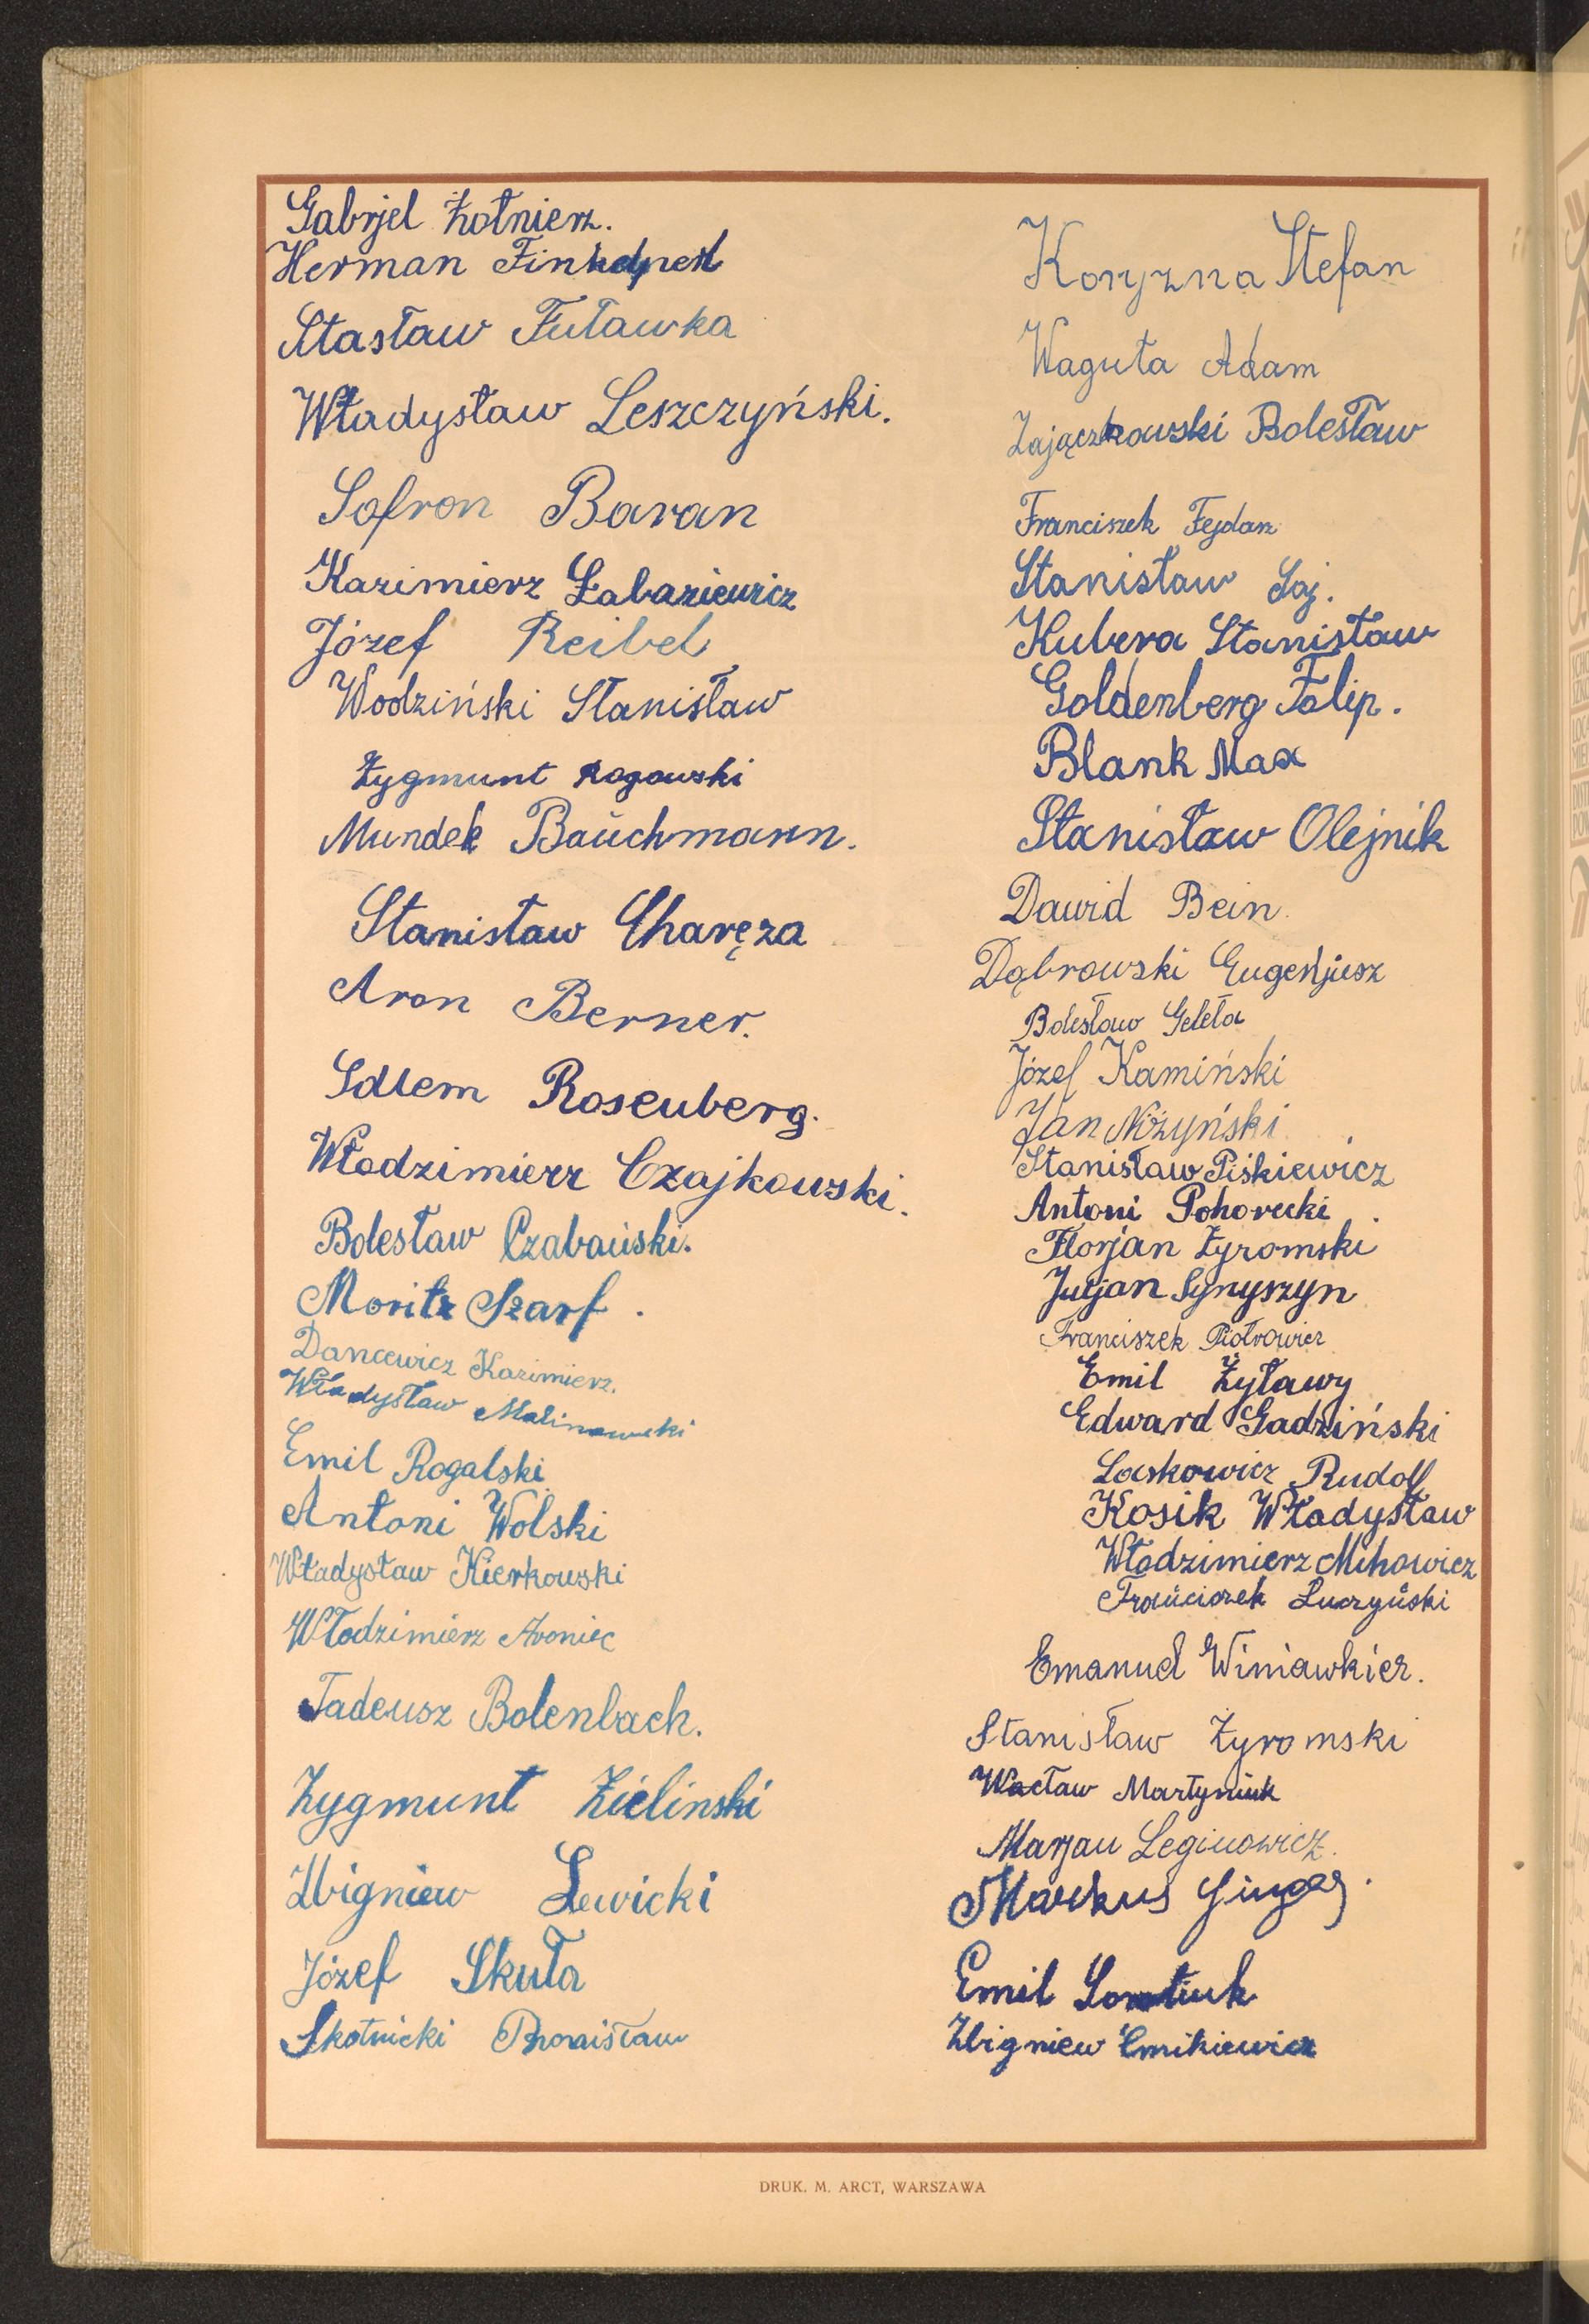 Gabrjel Żołnierz.
Herman Finkelperl
Stasław Futawka
Władysław Leszczyński.
Sofron Baran
Kazimierz Łabaziewicz
Józef Reibel
Wodziński Stanisław
Zygmunt Rogowski
Mundek Bauchmann.
Stanisław Charęza
Aron Berner.
Salem Rosenberg.
Włodzimierz Czajkowski.
Bolesław Czabański.
Moritz Szarf.
Dancewicz Kazimierz.
Władysław Malinowski
Emil Rogalski
Antoni Wolski
Władysław Kierkowski
Włodzimierz Aroniec
Tadeusz Bolenbach.
Zygmunt Zielinski
Zbigniew Lewicki
Józef Skuła
Skotnicki Bronisław
Koryzna Stefan
Waguta Adam
Zajączkowski Bolesław
Franciszek Fejdasz
Stanisław Saj.
Kubera Stanisław
Goldenberg Filip.
Blank Max
Stanisław Olejnik
Dawid Bein.
Dąbrowski Eugenjusz
Bolesław Geleta
Józef Kamiński
Jan Niżyński
Stanisław Piśkiewicz
Antoni Pohorecki
Florjan Żyromski
Juljan Synyszyn
Franciszek Piotrowicz
Emil Żyławy
Edward Gadziński
Laskowicz Rudolf
Kosik Władysław
Włodzimierz Mihowicz
Franciszek Łuczyński
Emanuel Winiawkier.
Stanisław Żyromski
Wacław Martyniuk
Marjan Leginowicz.
Markus
Emil
Zbigniew Ćmikiewicz
DRUK. M. ARCT, WARSZAWA